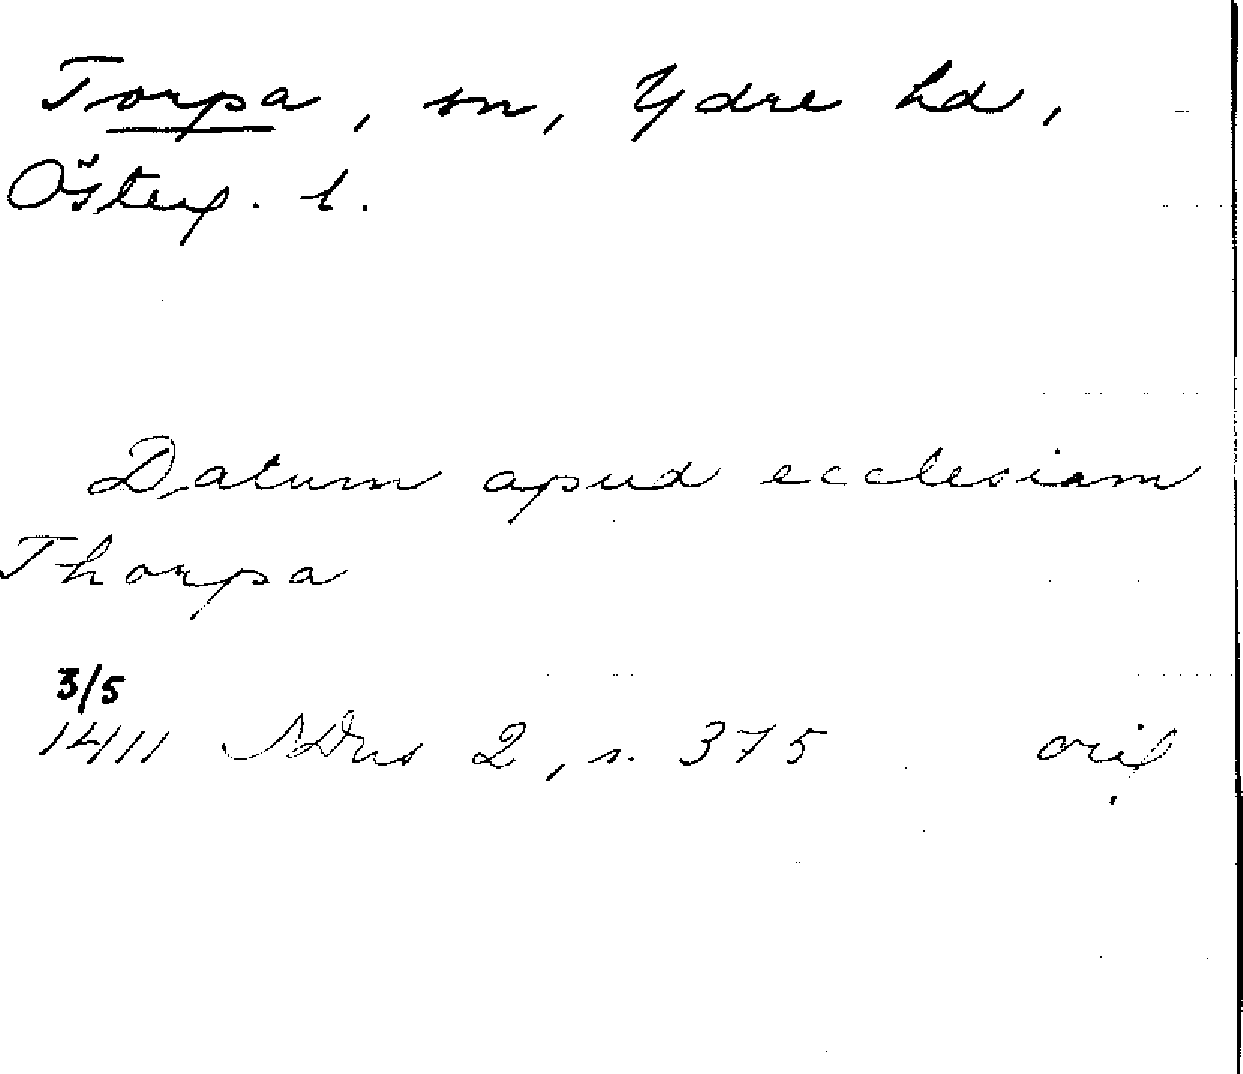 Torpa, sn, Ydre hd,
Österg. l.
Datum apud ecclesiam
Thorpa
3/5
1411 SDns 2, s. 375 orig